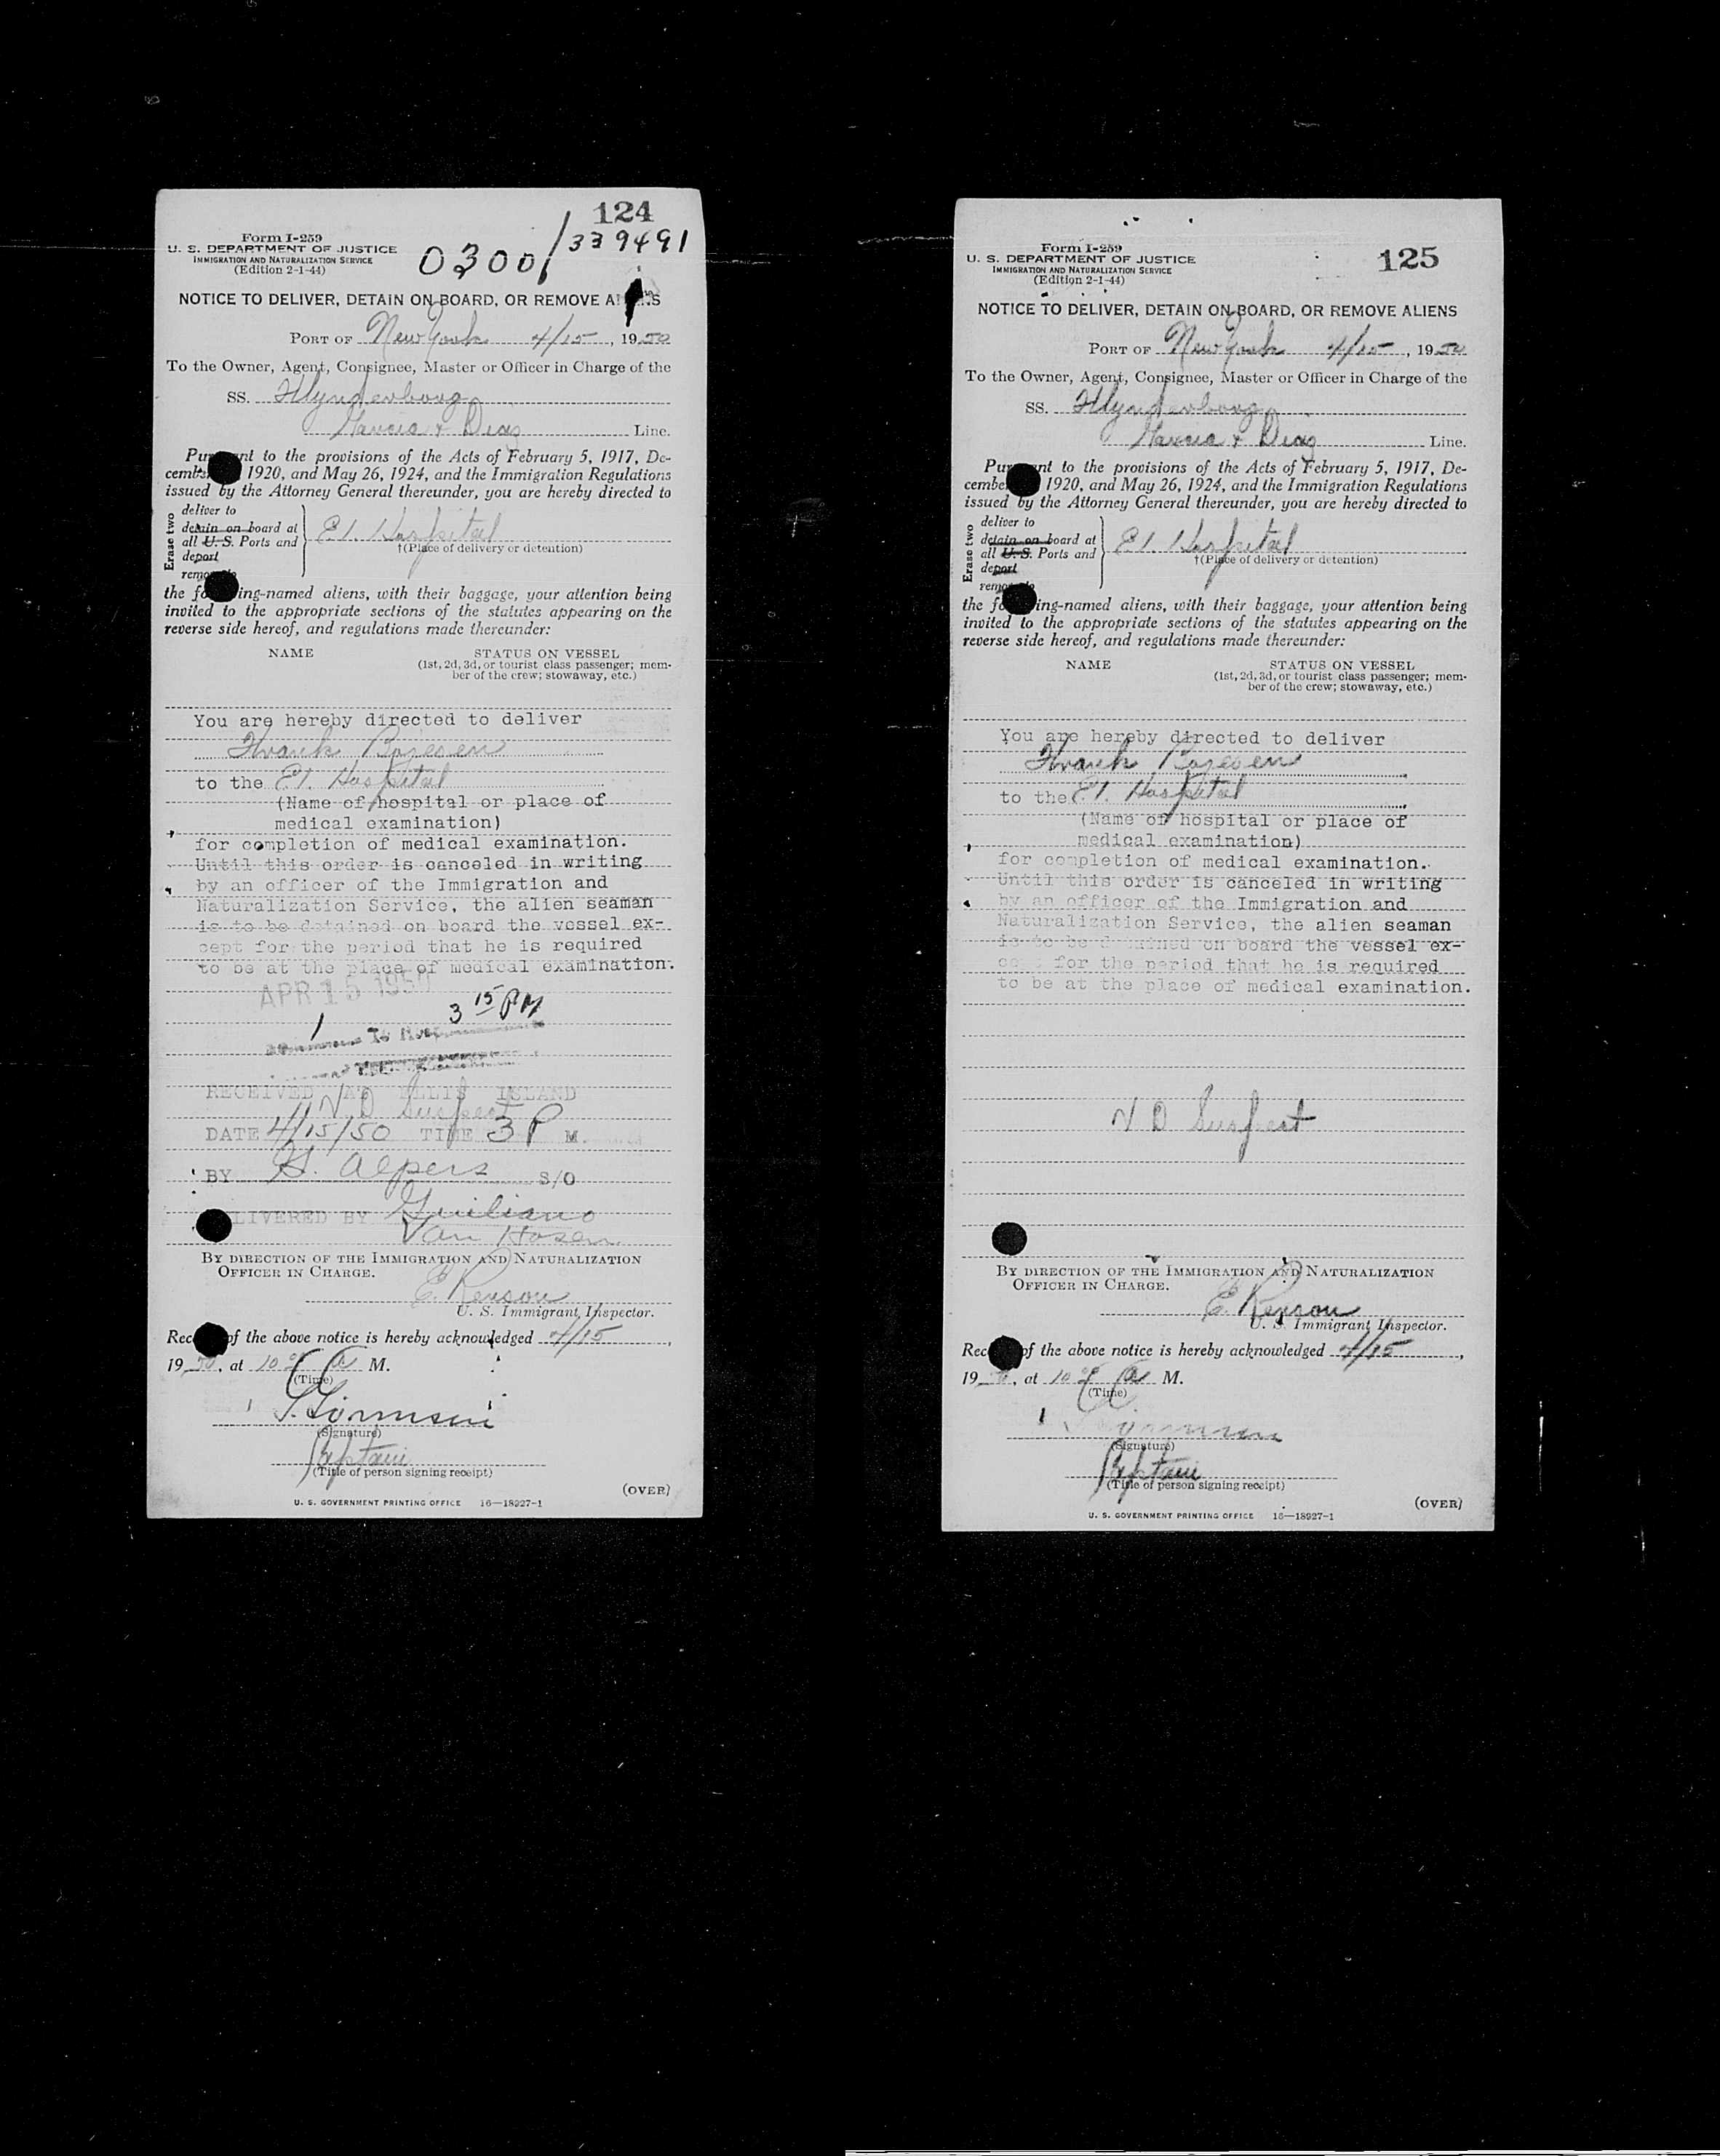 124
Form I-259
U. S. DEPARTMENT OF JUSTICE
IMMIGRATION AND NATURALIZATION SERVICE
(Edition 2-1-44)
0300/339491
NOTICE TO DELIVER, DETAIN ON BOARD, OR REMOVE
PORT OF New York 4/15, 1950
To the Owner, Agent, Consignee, Master or Officer in Charge of the
SS.
Garcia & Diaz Line.
to the provisions of the Acts of February 5, 1917, De-
1920, and May 26, 1924, and the Immigration Regulations
issued by the Attorney General thereunder, you are hereby directed to
Erase two
deliver to
detain on board at
all U.S. Ports and
deport
E.I. Hospital
†(Place of delivery or detention)
the ing-named aliens, with their baggage, your attention being
invited to the appropriate sections of the statutes appearing on the
reverse side hereof, and regulations made thereunder:
NAME STATUS ON VESSEL
(1st, 2d, 3d, or tourist class passenger; mem-
ber of the crew; stowaway, etc.)
You are hereby directed to deliver
Frank
to the E.I. Hospital
(Name of hospital or place of
medical examination)
for completion of medical examination.
Until this order is canceled in writing
by an officer of the Immigration and
Naturalization Service, the alien seaman
is to be detained on board the vessel ex-
cept for the period that he is required
to be at the place of medical examination.
APR 15 1950
3 15 PM
RECEIVED AT ELLIS ISLAND
V D Suspect
DATE 4/15/50 TIME 3 P M.
BY H. Alpers S/O
LIVERED BY Guiliano
Van Hosen
BY DIRECTION OF THE IMMIGRATION AND NATURALIZATION
OFFICER IN CHARGE.
E. Renson
U. S. Immigrant Inspector.
Rec of the above notice is hereby acknowledged 4/15,
1950, at 10 A M.
(Time)
(Signature)
Captain
(Title of person signing receipt)
(OVER)
U. S. GOVERNMENT PRINTING OFFICE 16—18927-1
125
Form I-259
U. S. DEPARTMENT OF JUSTICE
IMMIGRATION AND NATURALIZATION SERVICE
(Edition 2-1-44)
NOTICE TO DELIVER, DETAIN ON BOARD, OR REMOVE ALIENS
PORT OF New York 4/15, 1950
To the Owner, Agent, Consignee, Master or Officer in Charge of the
SS.
Garcia & Diaz Line.
to the provisions of the Acts of February 5, 1917, De-
1920, and May 26, 1924, and the Immigration Regulations
issued by the Attorney General thereunder, you are hereby directed to
Erase two
deliver to
detain on board at
all U.S. Ports and
deport
E.I. Hospital
†(Place of delivery or detention)
the ing-named aliens, with their baggage, your attention being
invited to the appropriate sections of the statutes appearing on the
reverse side hereof, and regulations made thereunder:
NAME STATUS ON VESSEL
(1st, 2d, 3d, or tourist class passenger; mem-
ber of the crew; stowaway, etc.)
You are hereby directed to deliver
Frank
to the E.I. Hospital
(Name of hospital or place of
medical examination)
for completion of medical examination.
Until this order is canceled in writing
by an officer of the Immigration and
Naturalization Service, the alien seaman
is to be detained on board the vessel ex-
for the period that he is required
to be at the place of medical examination.
V D Suspect
BY DIRECTION OF THE IMMIGRATION AND NATURALIZATION
OFFICER IN CHARGE.
E. Renson
U. S. Immigrant Inspector.
Rec of the above notice is hereby acknowledged 4/15,
1950, at 10 A M.
(Time)
(Signature)
Captain
(Title of person signing receipt)
(OVER)
U. S. GOVERNMENT PRINTING OFFICE 16—18927-1